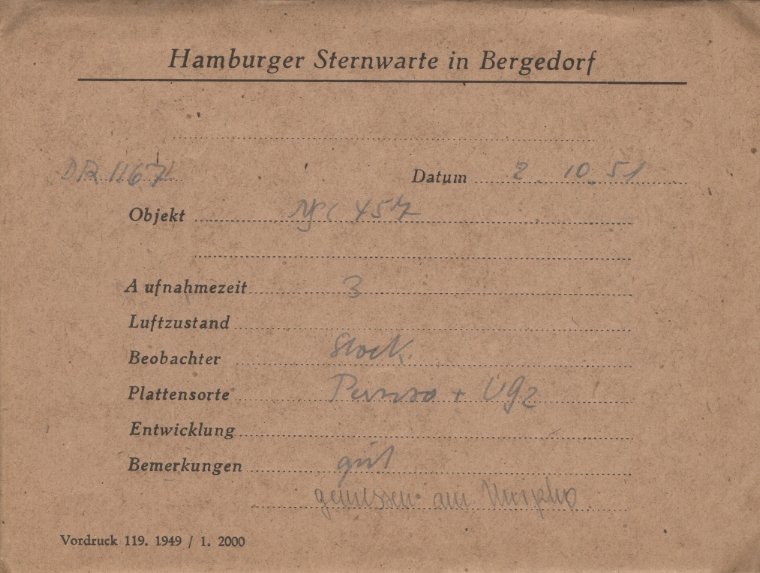 Hamburger Sternwarte in Bergedorf
DR 1167 Datum 2. 10. 51
Objekt NGC 457
Aufnahmezeit 3
Luftzustand
Beobachter Stock
Plattensorte + UG2
Entwicklung
Bemerkungen gut
gemessen am
Vordruck 119. 1949 / 1. 2000